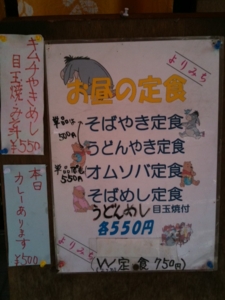 お昼の定食
よりみち
単品は
500円
そばやき定食
うどんやき定食
単品でも
550円
オムソバ定食
そばめし定食
うどんめし
目玉焼付
各550円
よりみち
(W定食750円)
キムチやきめし
目玉焼み付
¥550
本日
カレーあります
¥500